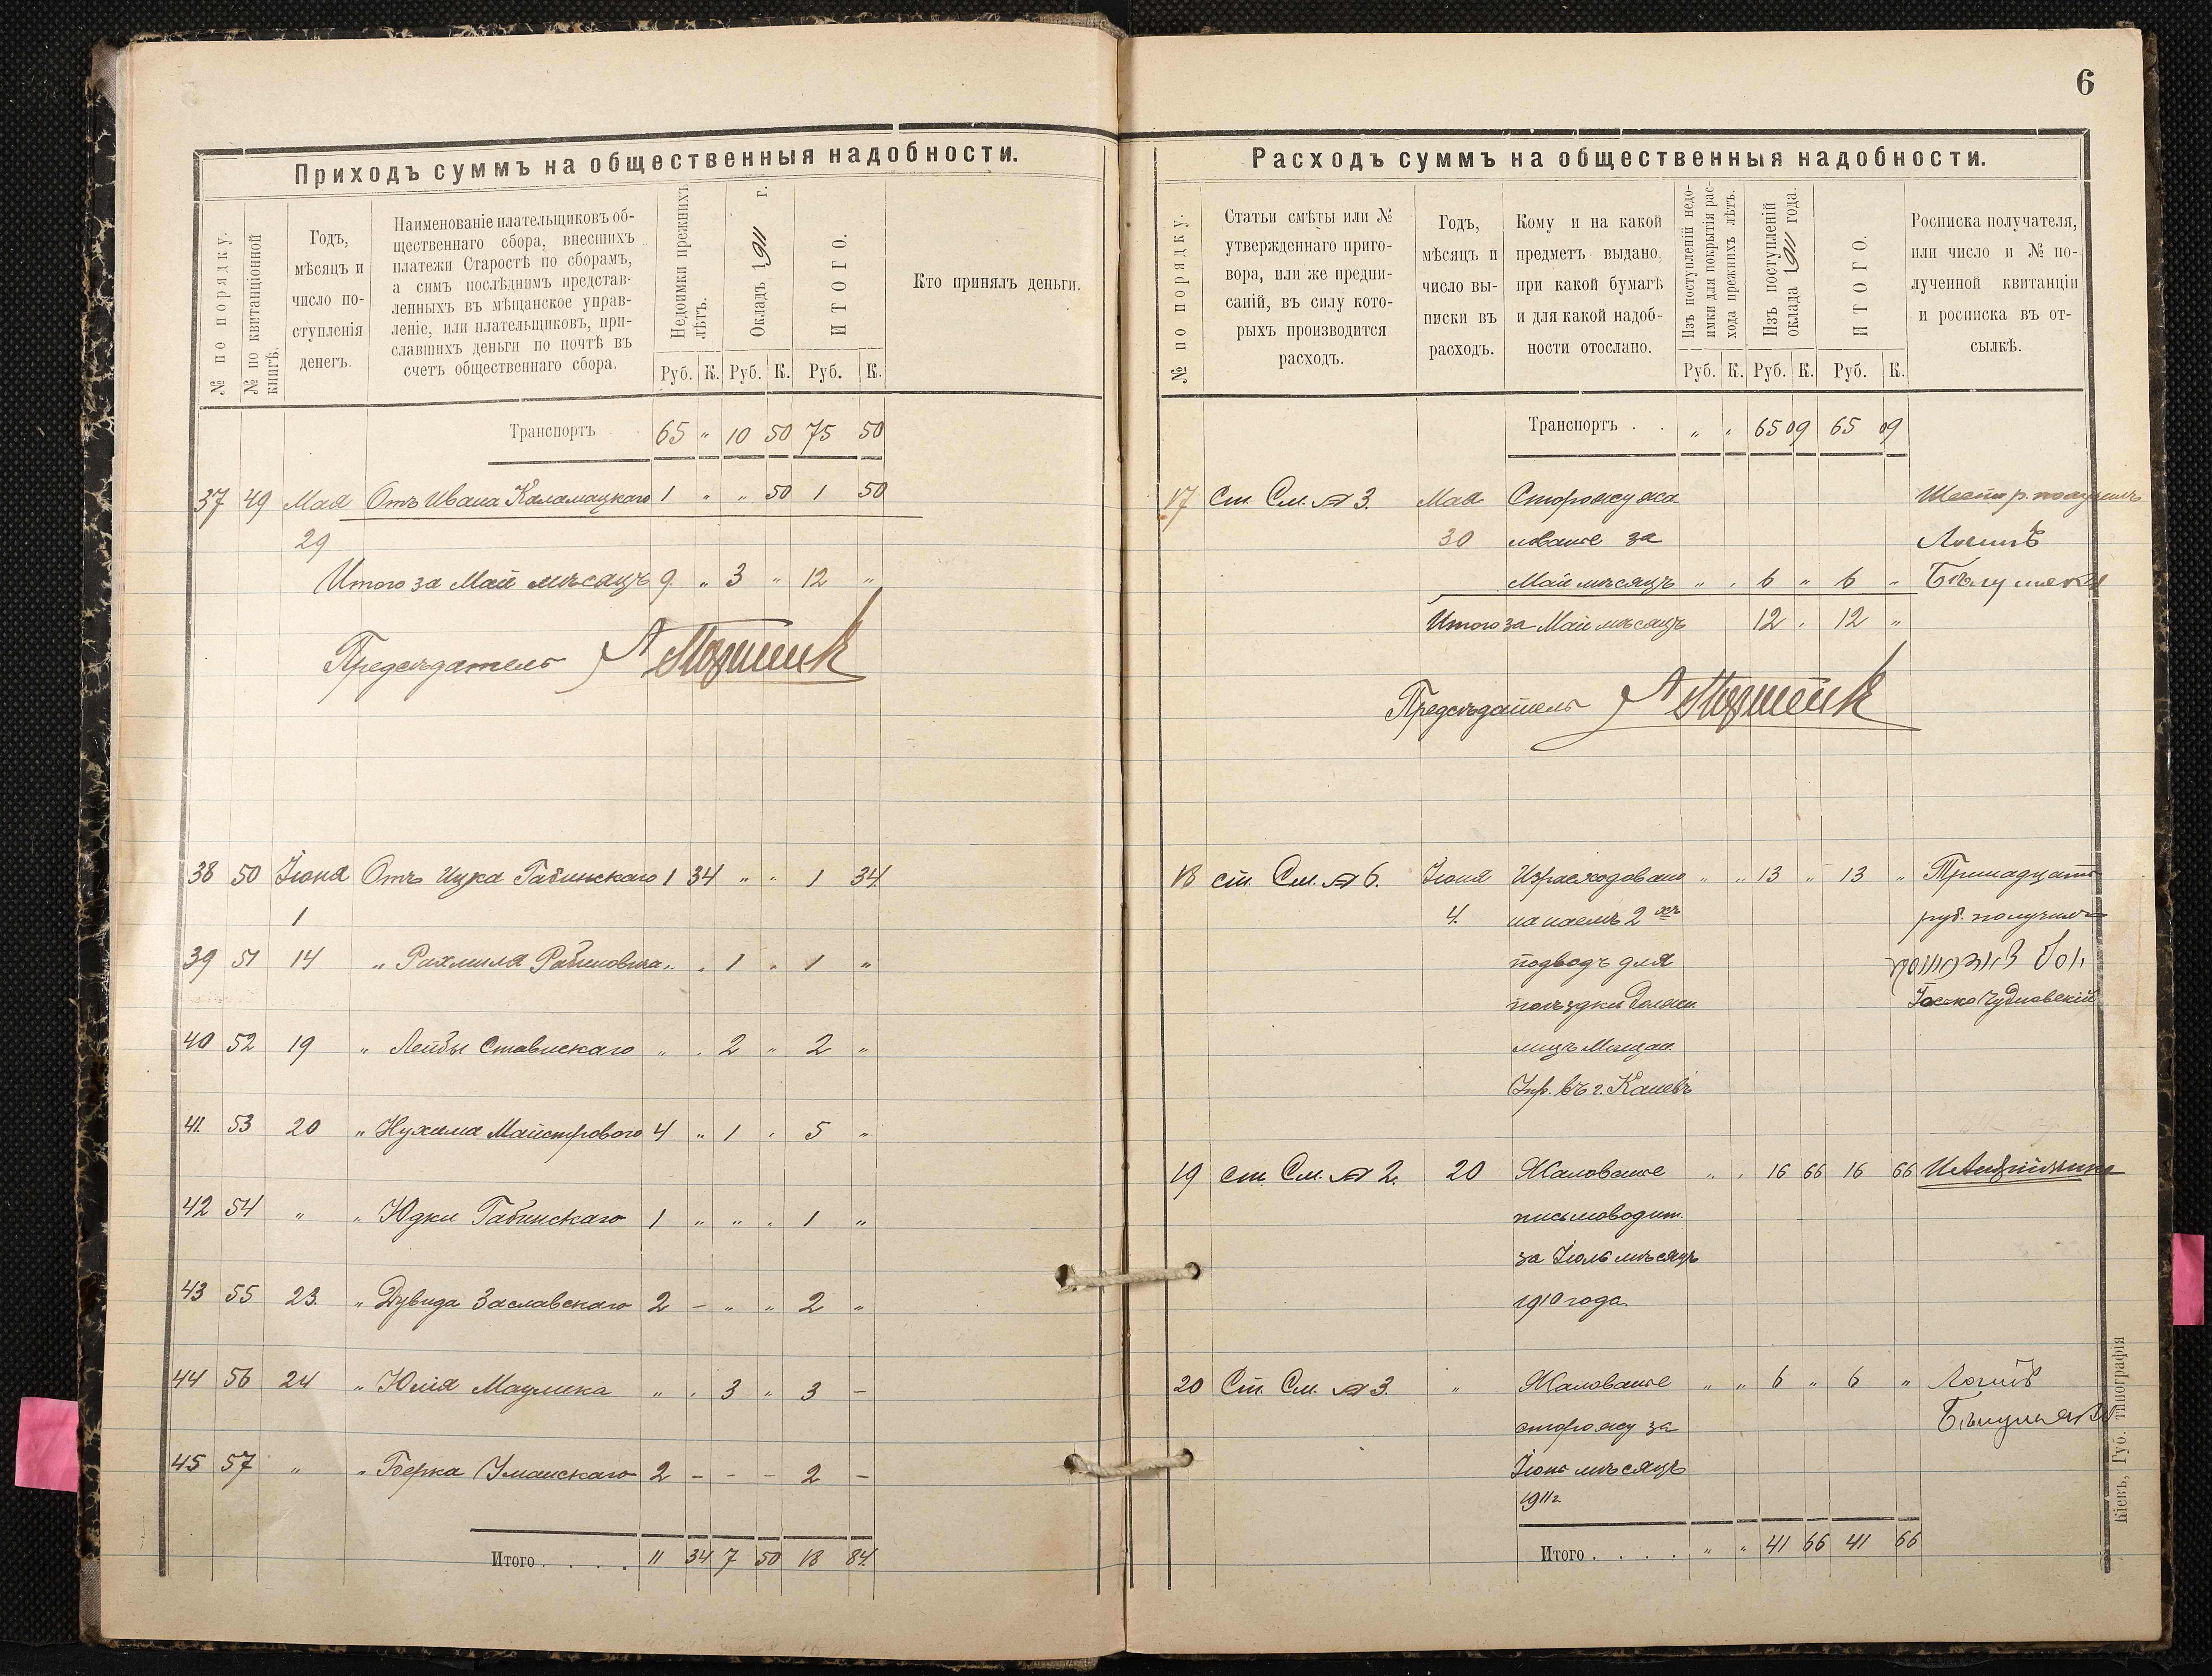 6
Приходъ суммъ на общественныя надобности.
№ по порядку.
№ по квитанціонной книгѣ.
Годъ,
мѣсяцъ и
число по-
ступленія
денегъ.
Наименованіе плательщиковъ об-
щественнаго сбора, внесшихъ
платежи Старостѣ по сборамъ,
а симъ послѣднимъ представ-
ленныхъ въ мѣщанское управ-
леніе, или плательщиковъ, при-
славшихъ деньги по почтѣ въ
счетъ общественнаго сбора.
Недоимки прежнихъ лѣтъ.
Окладъ 1911 г.
ИТОГО.
Руб. К. Руб. К. Руб. К.
Кто принялъ деньги.
Транспортъ 65 „ 10 50 75 50
37 49 Мая Отъ Ивана Каламацкаго 1 „ „ 50 1 50
29
Итого за Май мѣсяцъ 9 „ 3 „ 12 „
Предсѣдатель
38 50 Іюня Отъ Ицка Габинскаго 1 34 „ „ 1 34
1
39 51 14 „ Рахмиля Рабиновича „ „ 1 „ 1 „
40 52 19 „ Лейбы Ставискаго „ „ 2 „ 2 „
41 53 20 „ Нухима Майстрового 4 „ 1 „ 5 „
42 54 „ „ Юдки Габинскаго 1 „ „ „ 1 „
43 55 23 „ Дувида Заславскаго 2 – „ „ 2 „
44 56 24 „ Юлія „ „ 3 „ 3 –
45 57 „ „ Берка Уманскаго 2 – – – 2 –
Итого . . . . 11 34 7 50 18 84
Расходъ суммъ на общественныя надобности.
№ по порядку.
Статьи смѣты или №
утвержденнаго приго-
вора, или же предпи-
саній, въ силу кото-
рыхъ производится
расходъ.
Годъ,
мѣсяцъ и
число вы-
писки въ
расходъ.
Кому и на какой
предметъ выдано,
при какой бумагѣ
и для какой надоб-
ности отослано.
Изъ поступленій недо-
имки для покрытія рас-
хода прежнихъ лѣтъ.
Изъ поступленій
оклада 1911 года.
ИТОГО.
Руб. К. Руб. К. Руб. К.
Росписка получателя,
или число и № по-
лученной квитанціи
и росписка въ от-
сылкѣ.
Транспортъ . . „ „ 65 09 65 09
17 Ст. См. № 3. Мая Сторожу жа Шесть р. получилъ
30 лованіе за Логинъ
Май мѣсяцъ „ „ 6 „ 6 „
Итого за Май мѣсяцъ 12 „ 12 „
Предсѣдатель
18 ст. См. № 6. Іюня Израсходовано „ „ 13 „ 13 „ Тринадцать
4. на наемъ 2 хъ руб. получилъ
подводъ для
поѣздки должн. Іосько Чудновскій
лицъ Мѣщан.
Упр. въ г. Каневъ
19 ст. См. № 2. 20 Жалованіе „ „ 16 66 16 66
письмоводит.
за Іюль мѣсяцъ
1910 года.
20 Ст. См. № 3. „ Жалованіе „ „ 6 „ 6 „ Логинъ
сторожу за
Іюнь мѣсяцъ
1911 г.
Итого . . . . „ „ 41 66 41 66
Кіевъ, Губ. типографія